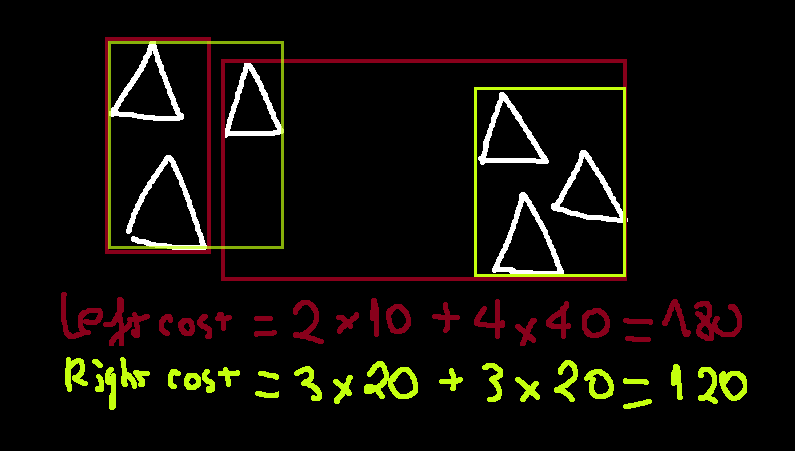 Left cost = 2 x 10 + 4 x 40 = 180
Right cost = 3 x 20 + 3 x 20 = 120